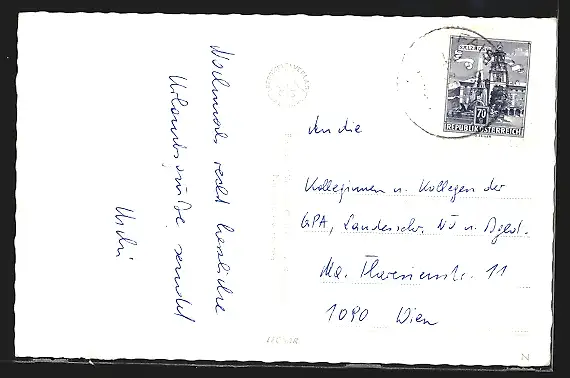 Nochmals recht herzliche
Urlaubsgrüße sendet
Uschi
An die
Kolleginnen u. Kollegen der
GPA, Landessekr. NÖ u. Bgld.
Ma. Theresienstr. 11
1090 Wien
SALZBURG
70
REPUBLIK ÖSTERREICH